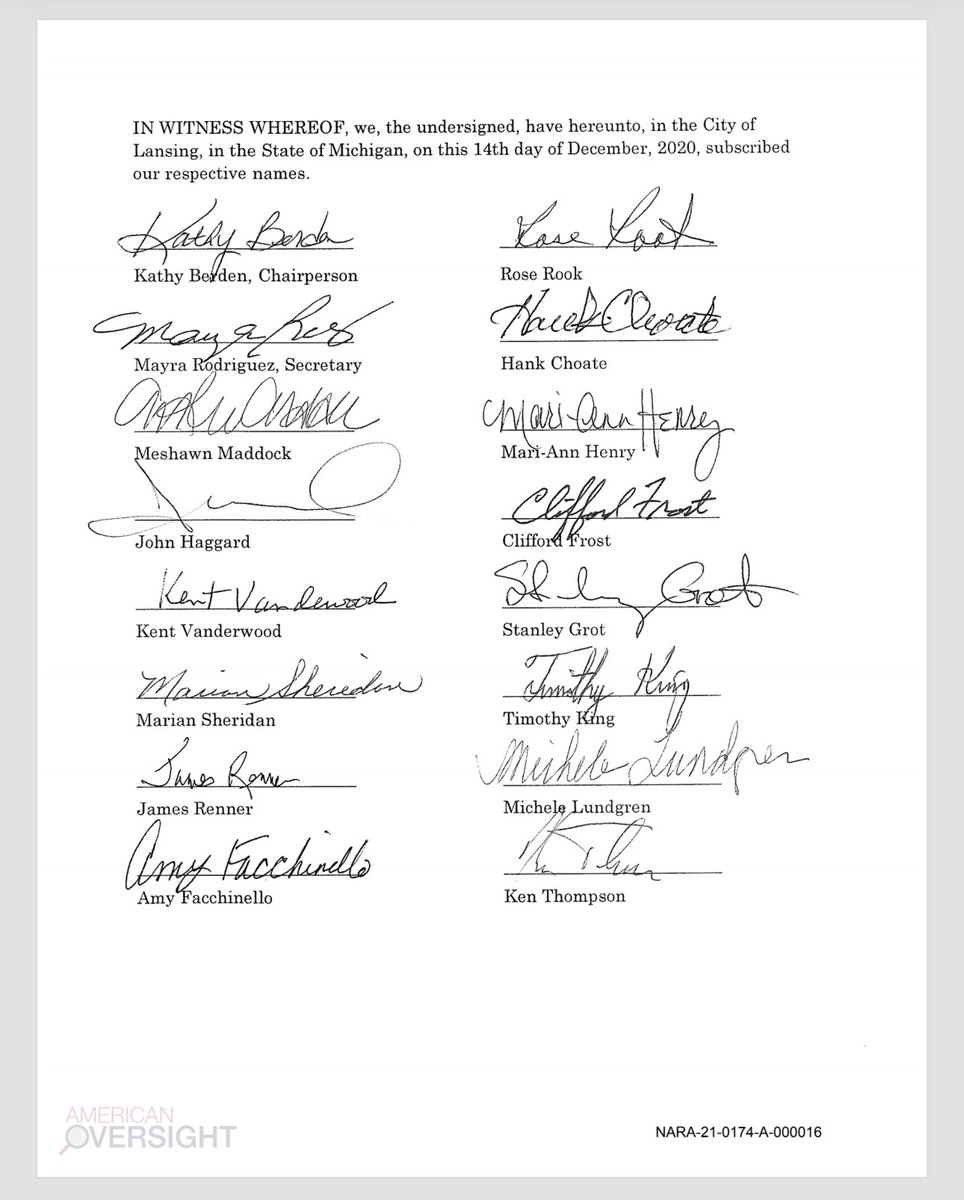 IN WITNESS WHEREOF, we, the undersigned, have hereunto, in the City of
Lansing, in the State of Michigan, on this 14th day of December, 2020, subscribed
our respective names.
Kathy Berden
Kathy Berden, Chairperson
Rose Rook
Rose Rook
Mayra Rodriguez, Secretary
Hank Choate
Hank Choate
Meshawn Maddock
Mari-Ann Henry
Mari-Ann Henry
John Haggard
Clifford Frost
Clifford Frost
Kent Vanderwood
Kent Vanderwood
Stanley Grot
Marian Sheridan
Marian Sheridan
Timothy King
Timothy King
James Renner
James Renner
Michele Lundgren
Michele Lundgren
Amy Facchinello
Amy Facchinello
Ken Thompson
AMERICAN
OVERSIGHT
NARA-21-0174-A-000016